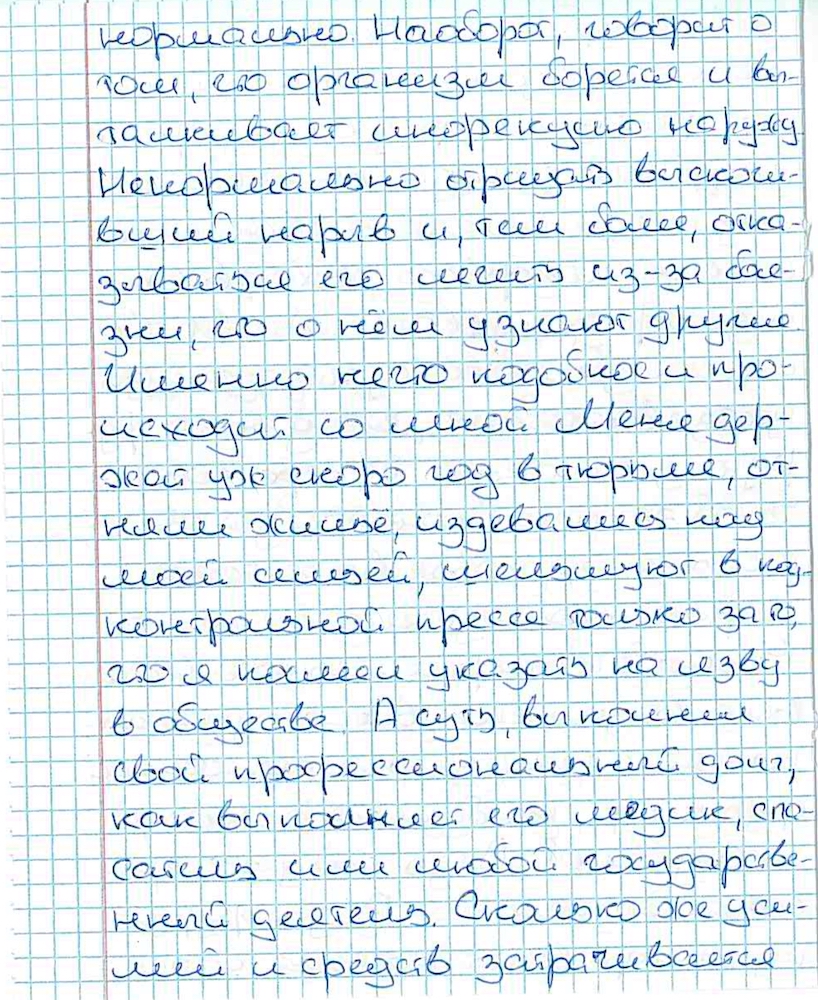 нормально. Наоборот, говорит о
том, что организм борется и вы-
талкивает инородную наружу.
Ненормально отрицать выскочи-
вший нарыв и, тем более, отка-
зываться его лечить из-за боя-
зни, что о нём узнают другие.
Именно нечто подобное и про-
исходит со мной. Меня дер-
жат уж скоро год в тюрьме, от-
няли жильё, издевались над
моей семьёй, шельмуют в под-
контрольной прессе только за то,
что я посмел указать на язву
в обществе. А суть, выполнил
свой профессиональный долг,
как выполняет его медик, спа-
сатель или любой государстве-
нный деятель. Сколько же уси-
лий и средств затрачивается